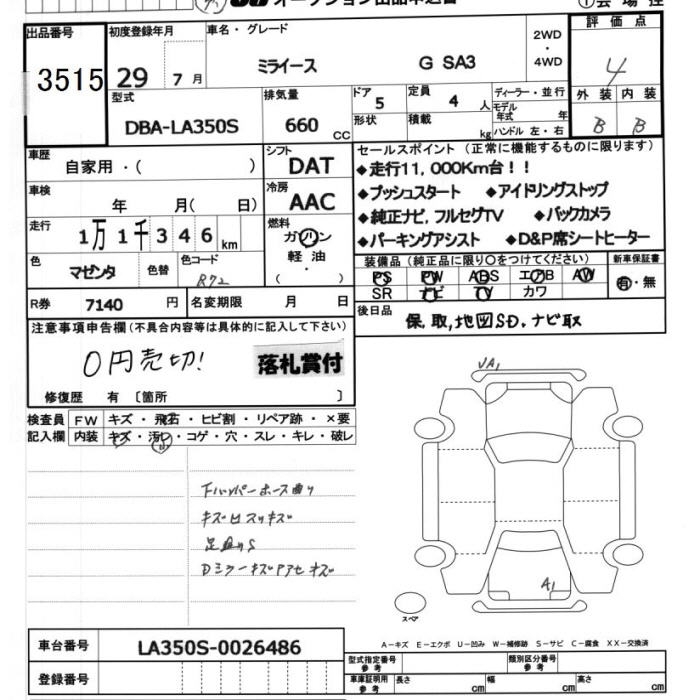 オークション出品申込書
①会場控
出品番号
3515
初度登録年月
29 7月
車名・グレード
ミライース G SA3
2WD
・
4WD
評価点
4
型式
DBA-LA350S
排気量
660 CC
ドア
5
形状
定員
4 人
積載
kg
ディーラー・並行
モデル年式 年
ハンドル 左・右
外装 内装
B B
車歴
自家用・( )
シフト
DAT
車検
年 月( 日)
冷房
AAC
走行
1万1千346km
燃料
ガソリン
軽油
・
( )
色
マゼンタ
色替
色コード
R72
R券 7140 円
名変期限 月 日
セールスポイント(正常に機能するものに限ります)
◆走行11,000Km台!!
◆プッシュスタート ◆アイドリングストップ
◆純正ナビ,フルセグTV ◆バックカメラ
◆パーキングアシスト ◆D&P席シートヒーター
装備品(純正品に限り○をつけてください) 新車保証書
PS PW ABS エアB AW
SR ナビ TV カワ
有・無
後日品
保,取,地図SD,ナビ取
注意事項申告欄(不具合内容等は具体的に記入して下さい)
0円売切!
落札賞付
修復歴 有 〔箇所 〕
検査員記入欄
FW キズ・飛石・ヒビ割・リペア跡・×要
内装 キズ・汚れ・コゲ・穴・スレ・キレ・破レ
小
キズ
S
Dミラーキズ
A1
A1
スペア
車台番号 LA350S-0026486
登録番号
A-キズ E-エクボ U-凹み W-補修跡 S-サビ C-腐食 XX-交換済
型式指定番号 参考
類別区分番号 参考
車庫証明用 参考
長さ cm
幅 cm
高さ cm